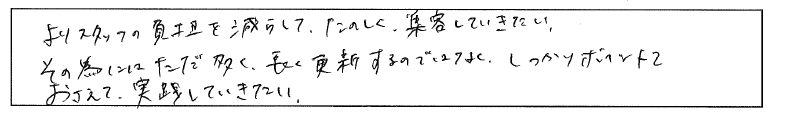 よりスタッフの負担を減らして、たのしく、集客していきたい。
その為にはただ多く、長く更新するのではなく、しっかりポイントを
おさえて、実践していきたい。